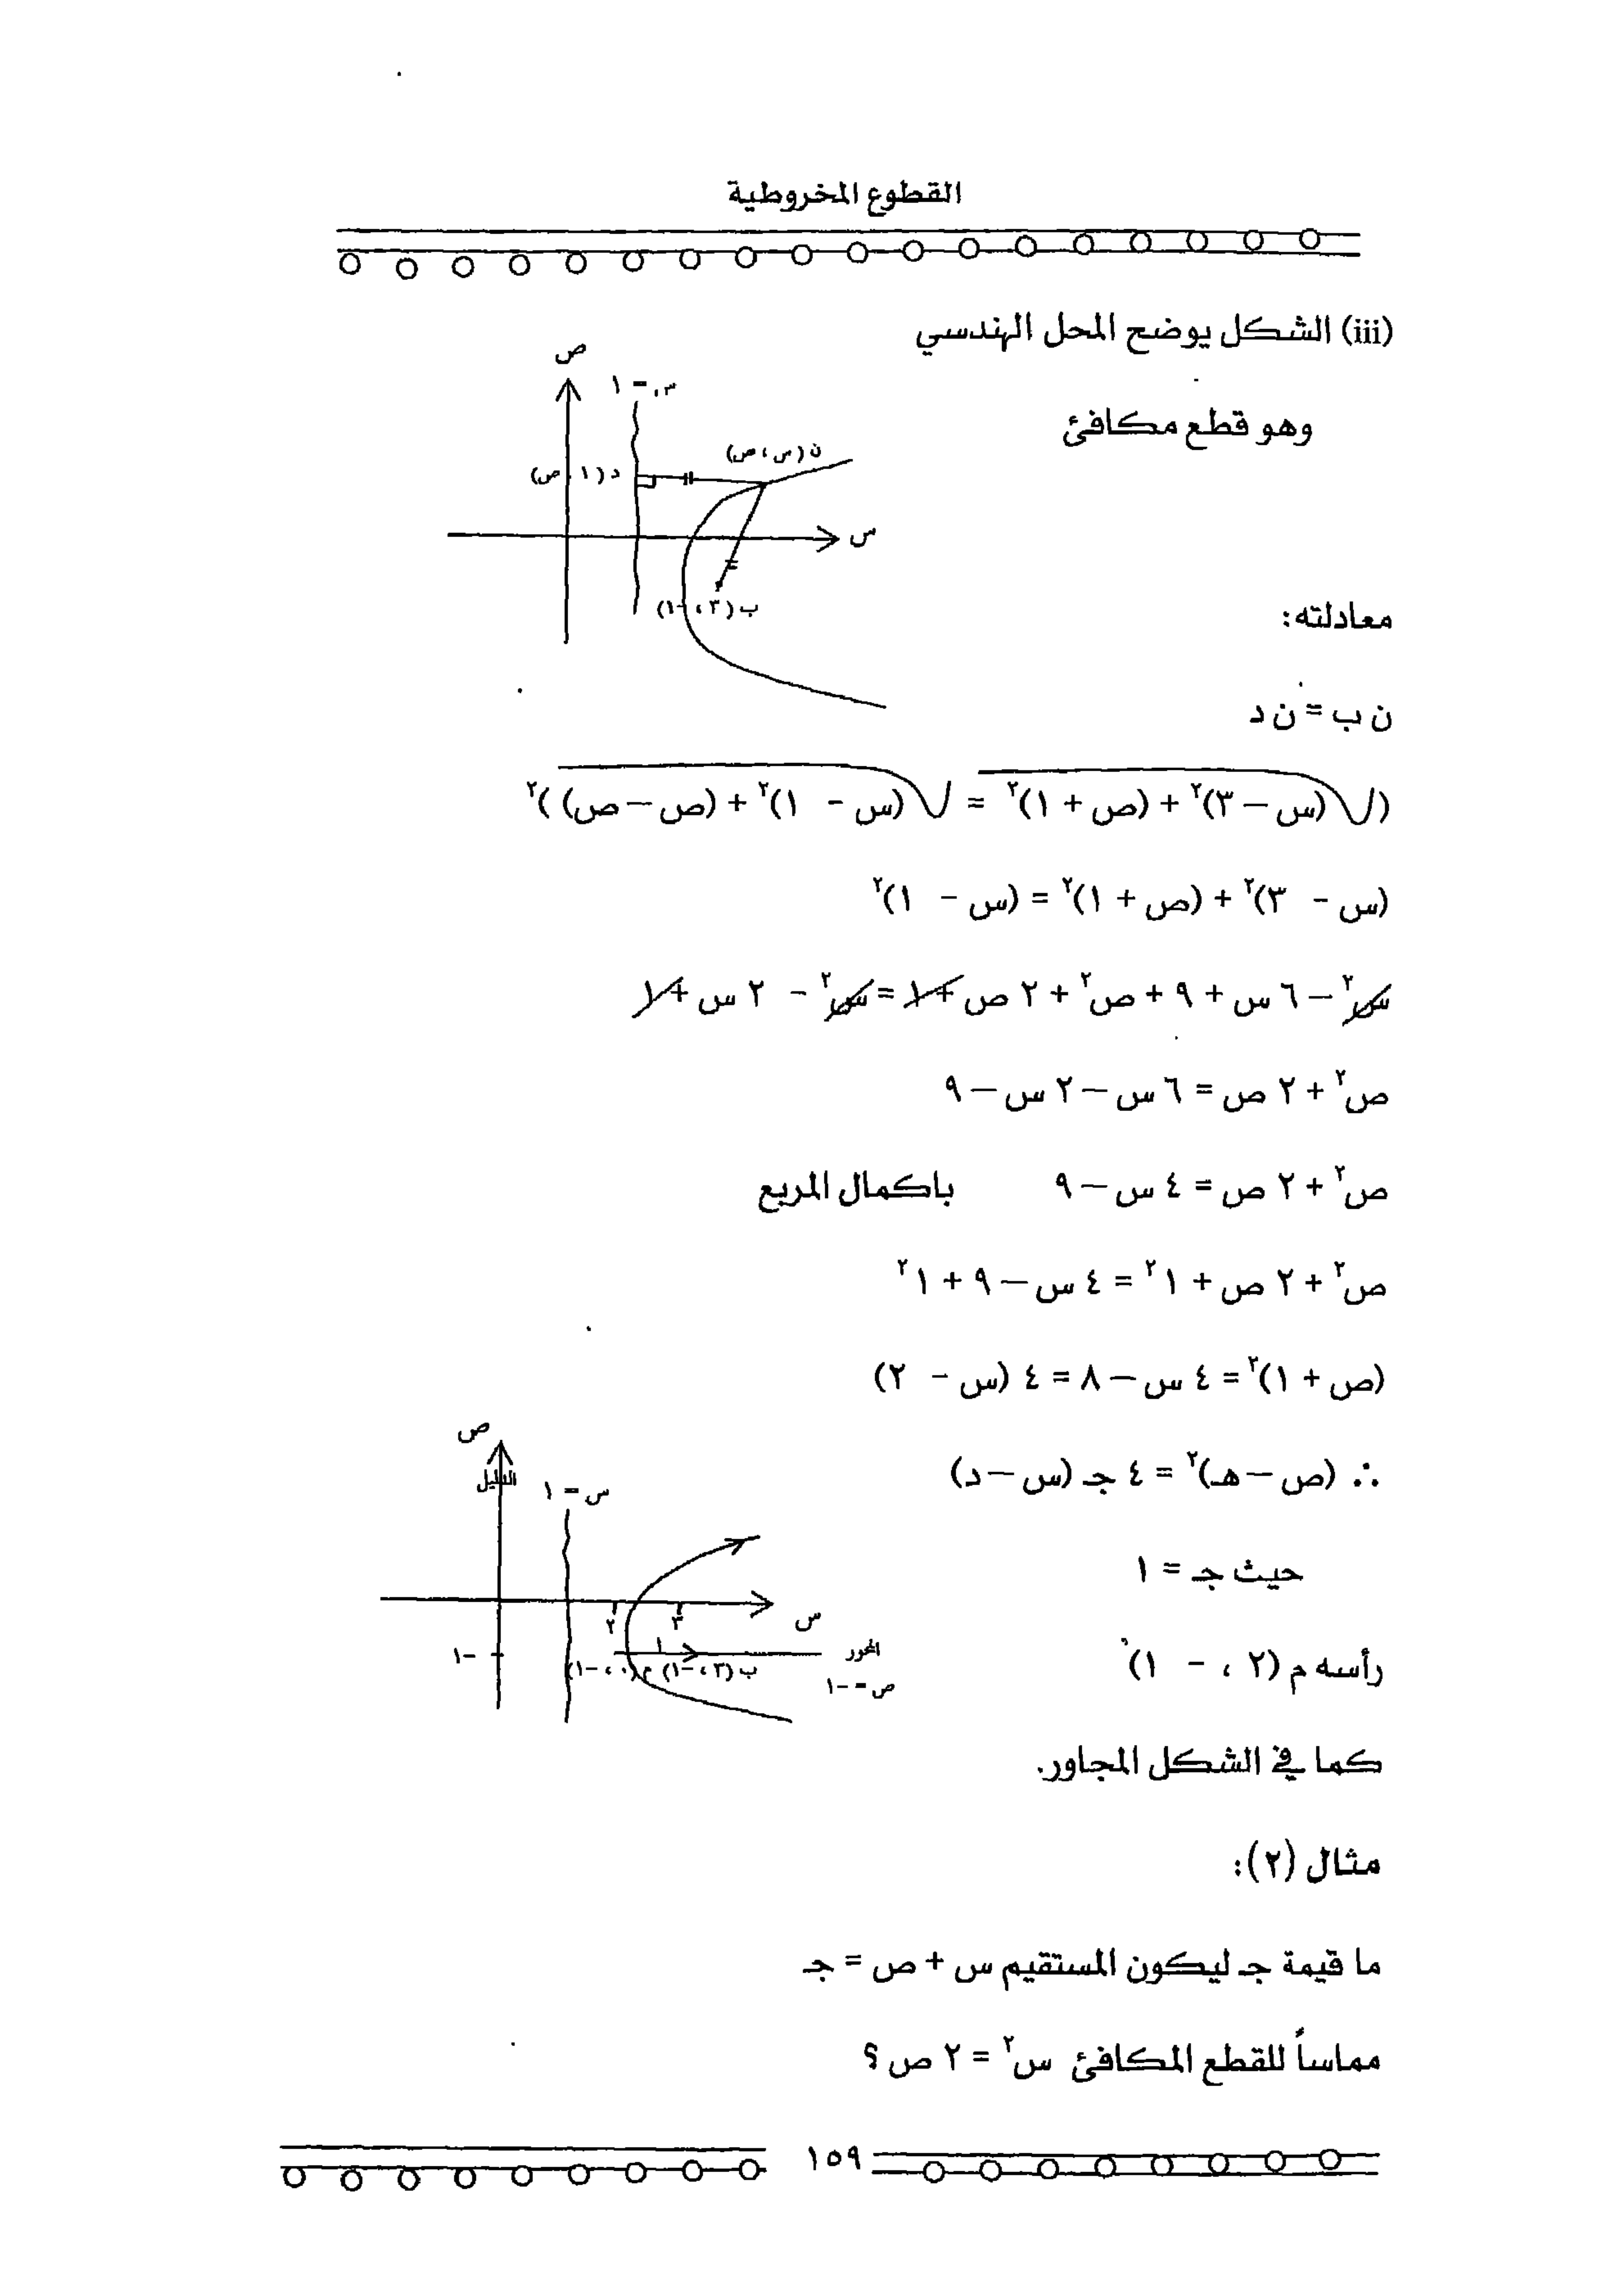 القطوع المخروطية
(iii) الشكل يوضح المحل الهندسي
ص
س = ١
وهو قطع مكافئ
ن (س ، ص)
د (١ ، ص)
س
ب (٣ ، -١)
معادلته:
ن ب = ن د
(√(س – ٣)٢ + (ص + ١)٢ = √(س - ١)٢ + (ص – ص) )٢
(س - ٣)٢ + (ص + ١)٢ = (س - ١)٢
س٢ – ٦ س + ٩ + ص٢ + ٢ ص + ١ = س٢ - ٢ س + ١
ص٢ + ٢ ص = ٦ س – ٢ س – ٩
ص٢ + ٢ ص = ٤ س – ٩ باكمال المربع
ص٢ + ٢ ص + ١٢ = ٤ س – ٩ + ١٢
(ص + ١)٢ = ٤ س – ٨ = ٤ (س - ٢)
ص
∴ (ص – هـ)٢ = ٤ جـ (س – د)
الدليل
س = ١
حيث جـ = ١
٢ ٣ س
-١
١
المحور
ب (٣ ، -١) م (٠ ، -١)
ص = -١
رأسه م (٢ ، - ١)
كما في الشكل المجاور.
مثال (٢):
ما قيمة جـ ليكون المستقيم س + ص = جـ
مماساً للقطع المكافئ س٢ = ٢ ص ؟
١٥٩